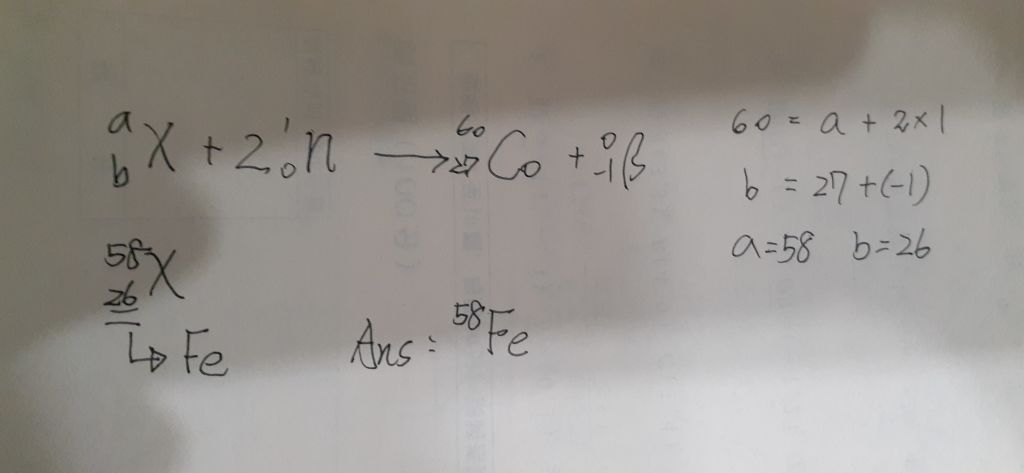 ᵃ_b X + 2 ¹₀n → ⁶⁰₂₇Co + ⁰₋₁β
60 = a + 2×1
b = 27 + (-1)
a=58 b=26
⁵⁸₂₆X
↳ Fe
Ans: ⁵⁸Fe